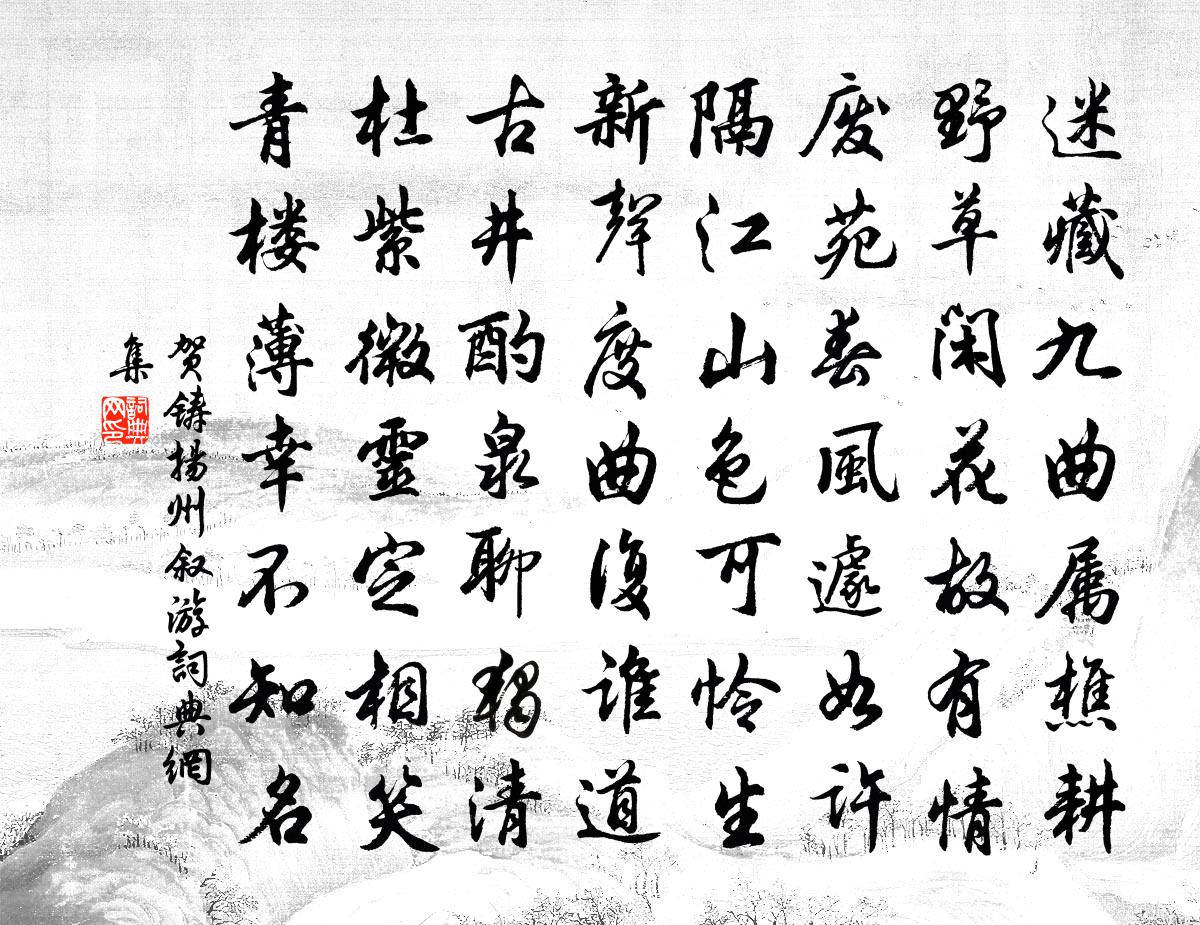 迷藏九曲属樵耕
野草闲花故有情
废苑春風遽如许
隔江山色可怜生
新聲度曲復谁道
古井酌泉聊独清
杜紫微靈定相笑
青楼薄幸不知名
贺铸揚州叙游詞典網
集
詞典网印